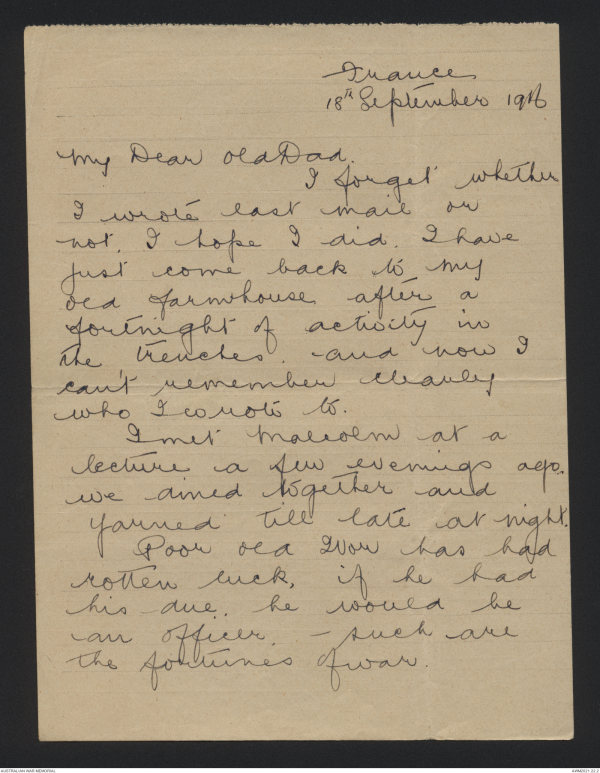 France
18th September 1916
My Dear old Dad.
I forget whether
I wrote last mail or
not. I hope I did. I have
just come back to my
old farmhouse after a
fortnight of activity in
the trenches. and now I
can't remember clearly
who I wrote to.
I met Malcolm at a
lecture a few evenings ago.
we dined together and
yarned till late at night.
Poor old Ivor has had
rotten luck, if he had
his due. he would be
an officer. - such are
the fortunes of war.
AUSTRALIAN WAR MEMORIAL